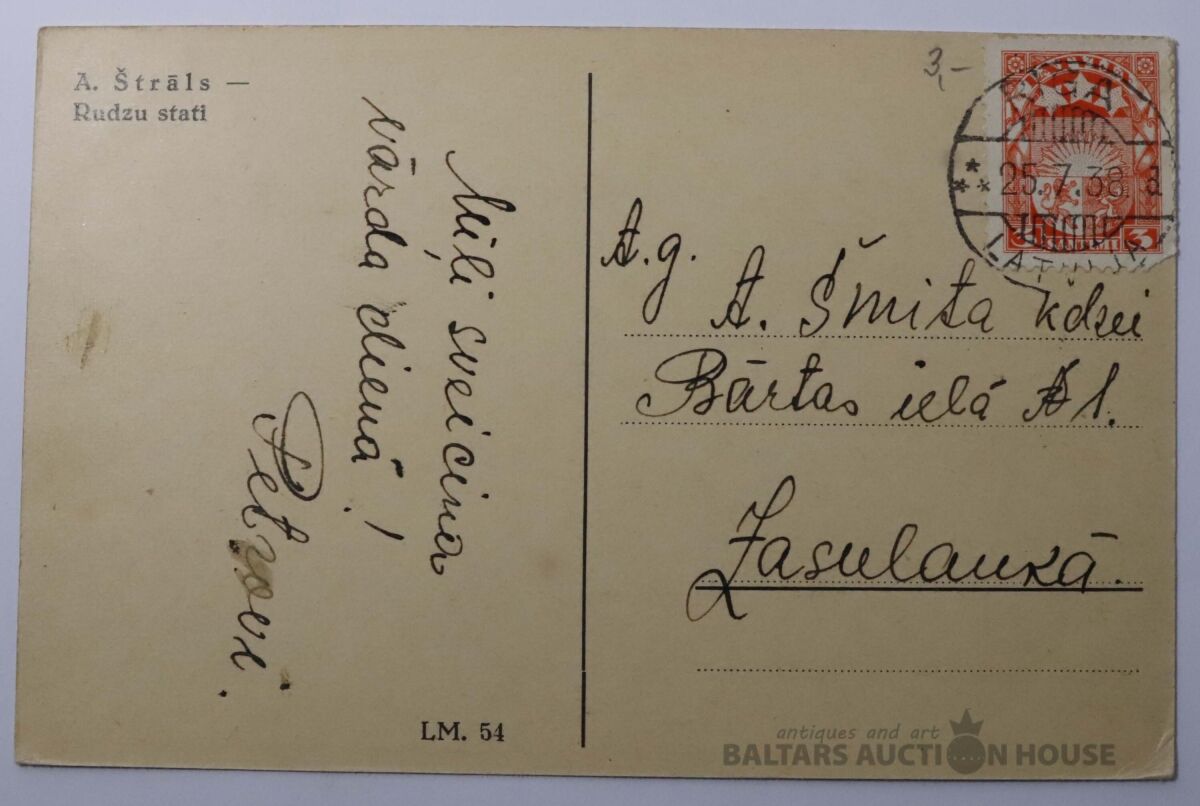 A. Štrāls —
Rudzu stati
Mīļi sveicina
vārda dienā!
Petrovi.
LM. 54
3,-
LATVIJA
3 3
RIGA
25.7.38. a
LATVIJA
A.g.
A. Šmita kdzei
Bārtas ielā № 1.
Zasulaukā.
antiques and art
BALTARS AUCTION HOUSE